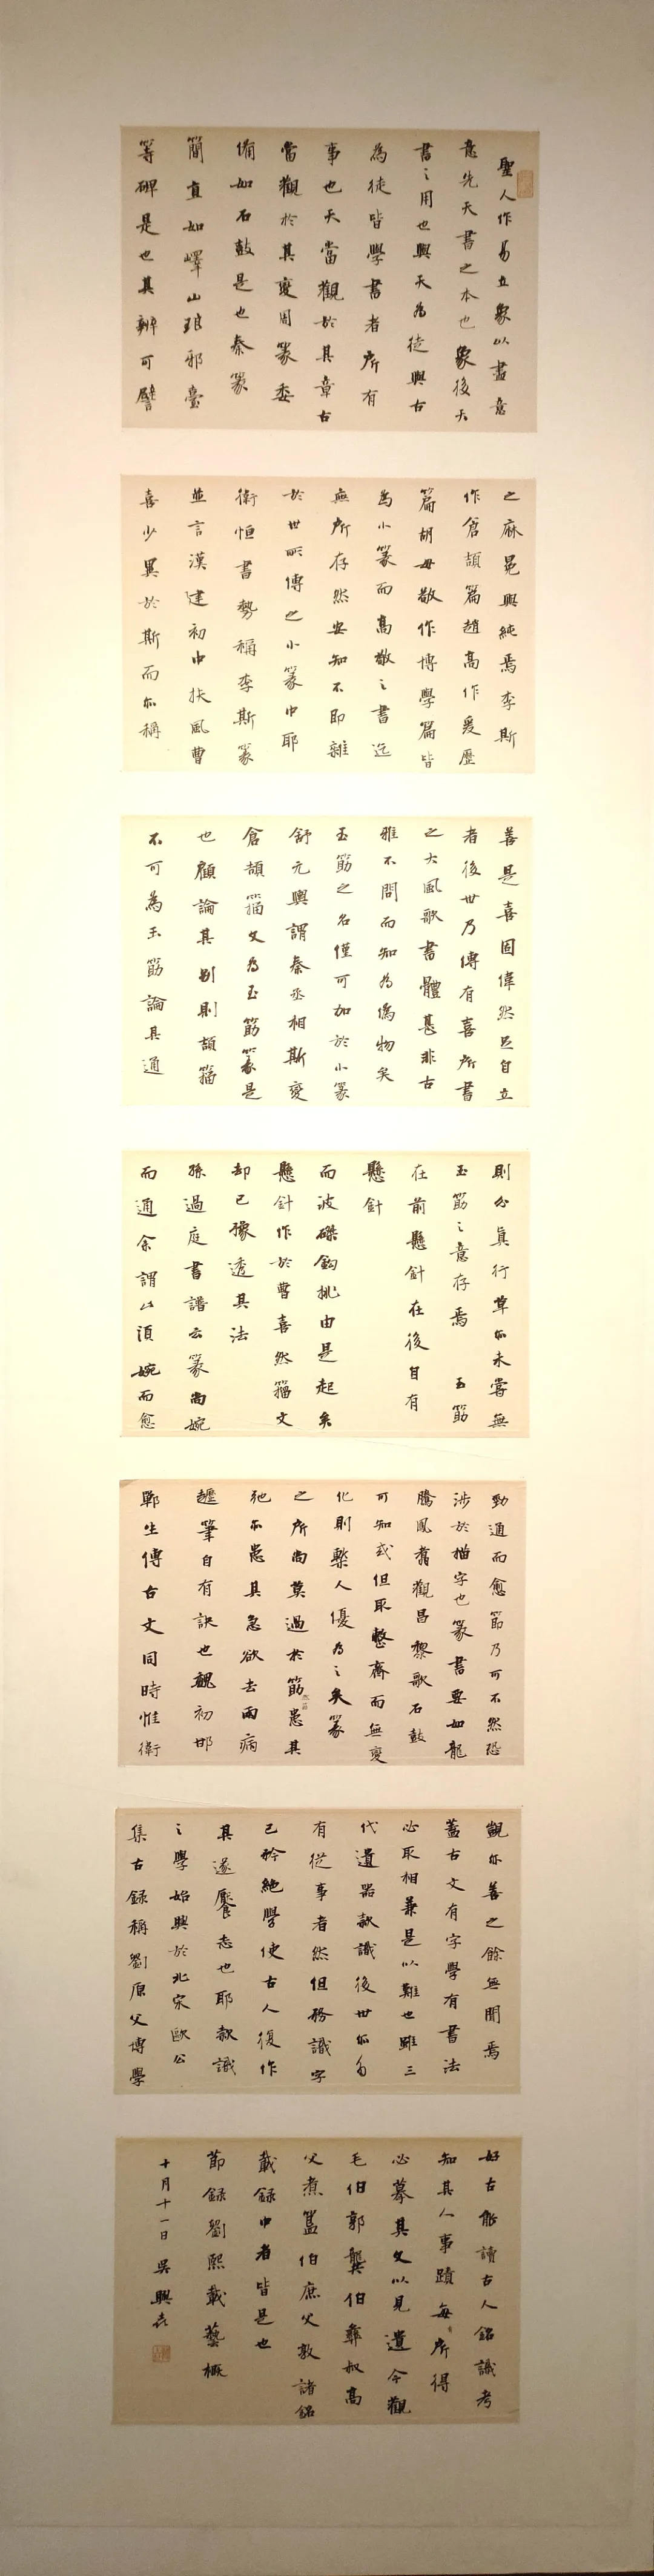 聖人作易立象以盡意
意先天書之本也象後天
書之用也與天為徒與古
為徒皆學書者所有
事也天當觀於其章古
當觀於其變周篆委
備如石鼓是也秦篆
簡直如嶧山琅邪臺
等碑是也其辨可譬
之麻冕與純焉李斯
作倉頡篇趙高作爰歷
篇胡毋敬作博學篇皆
為小篆而高敬之書迄
無所存然安知不即雜
於世所傳之小篆中耶
衛恒書勢稱李斯篆
並言漢建初中扶風曹
喜少異於斯而亦稱
善是喜固偉然足自立
者後世乃傳有喜所書
之大風歌書體甚非古
雅不問而知為偽物矣
玉筯之名僅可加於小篆
舒元輿謂秦丞相斯變
倉頡籀文為玉筯篆是
也顧論其別則頡籀
不可為玉筯論其通
則分真行草亦未嘗無
玉筯之意存焉 玉筯
在前懸針在後自有
懸針
而波磔鈎挑由是起矣
懸針作於曹喜然籀文
却已豫透其法
孫過庭書譜云篆尚婉
而通余謂此須婉而愈
勁通而愈節乃可不然恐
涉於描字也篆書要如龍
騰鳳翥觀昌黎歌石鼓
可知或但取整齊而無變
化則槧人優為之矣篆
之所尚莫過於筯然筯患其
弛亦患其急欲去兩病
趲筆自有訣也魏初邯
鄲生傳古文同時惟衛
覬亦善之餘無聞焉
蓋古文有字學有書法
必取相兼是以難也雖三
代遺器款識後世亦多
有從事者然但務識字
已矜絕學使古人復作
其遂饜志也耶款識
之學始興於北宋歐公
集古錄稱劉原父博學
好古能讀古人銘識考
知其人事蹟每有所得
必摹其文以見遺今觀
毛伯郭龔伯彝叔高
父煮簋伯庶父敦諸銘
載錄中者皆是也
節錄劉熙載藝概
十月十一日 吳興